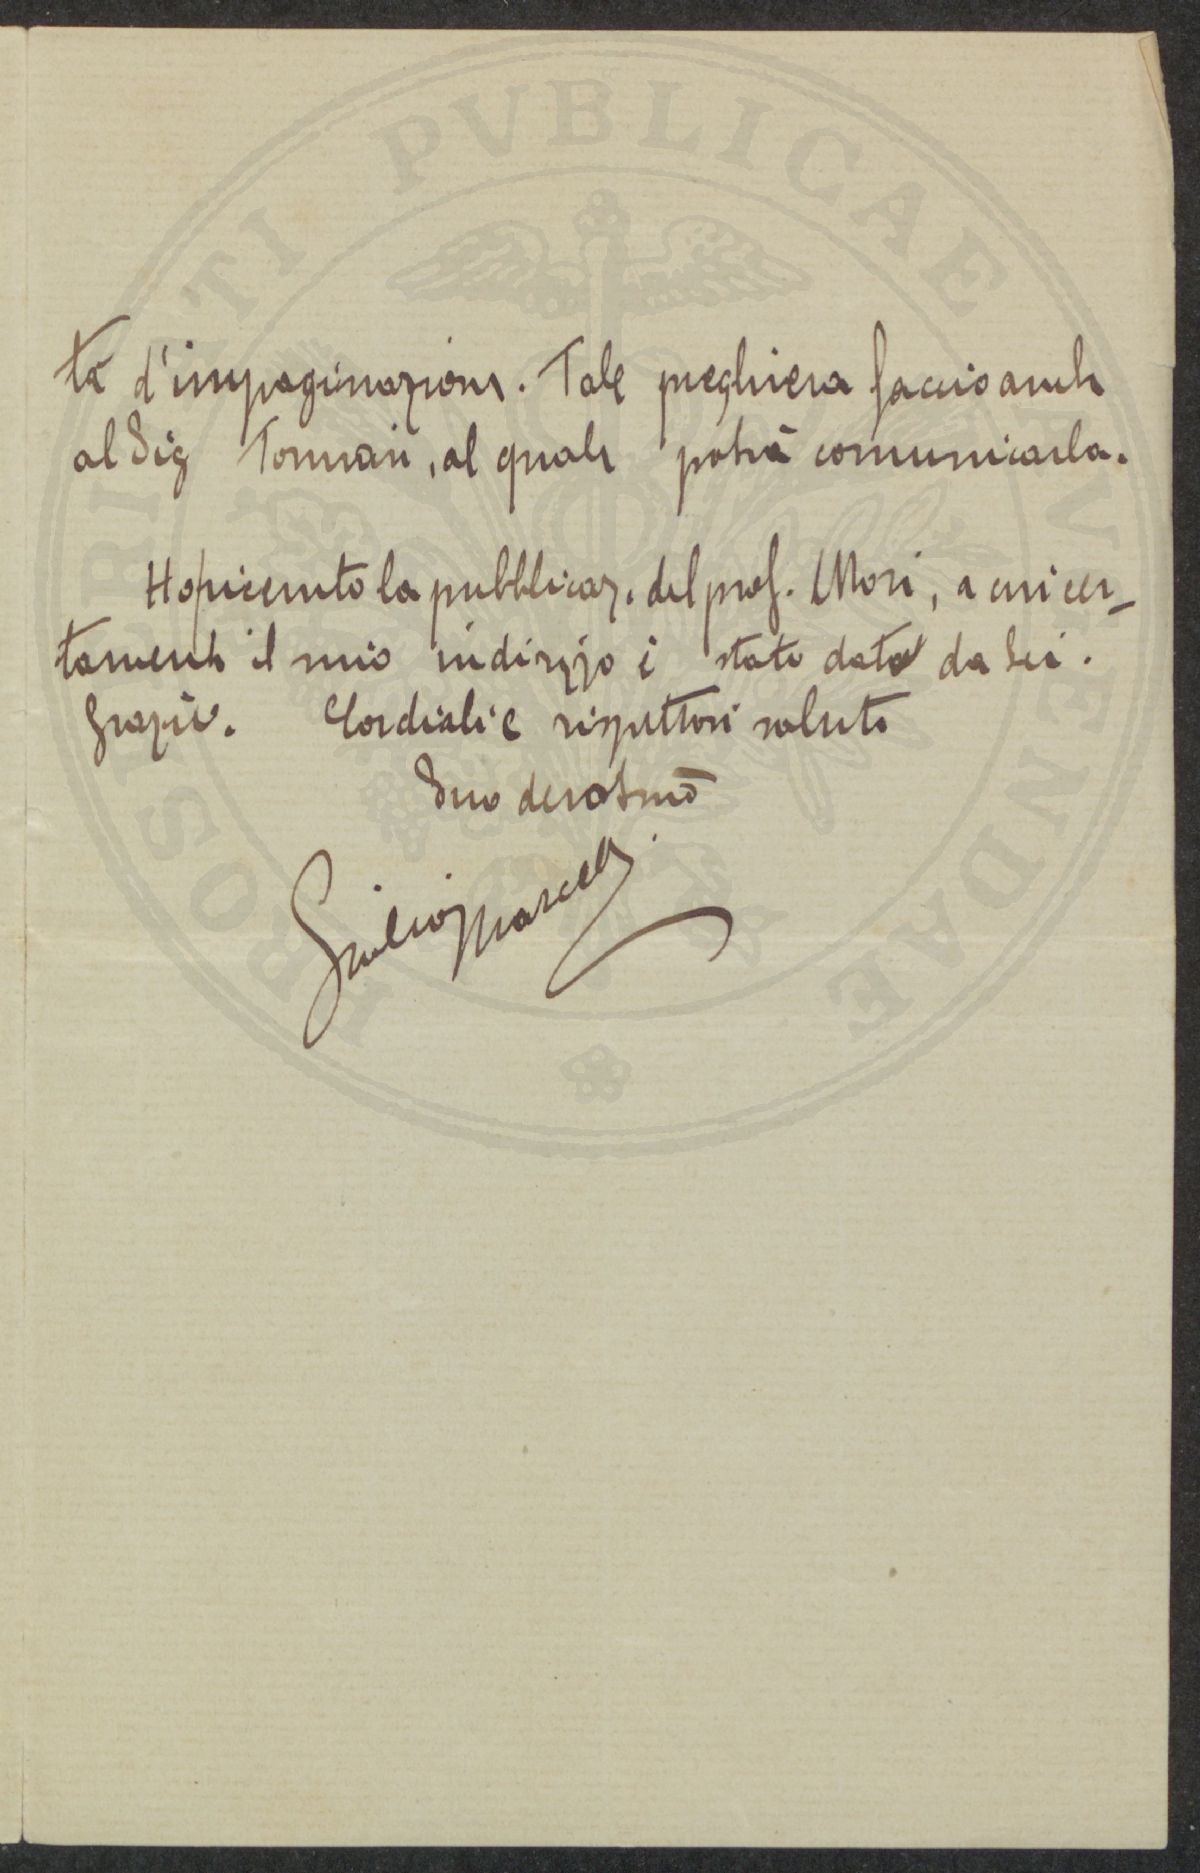 PROSPERITATI PVBLICAE AVGENDAE
tà d'impaginazione. Tale preghiera faccio anche
al Sig Tommasi, al quale potrà comunicarla.
Ho ricevuto la pubblicaz. del prof. Mori, a cui cer-
tamente il mio indirizzo è stato dato da Lei.
Grazie. Cordiali e rispettosi saluti
Suo devotmo
Giulio Marcelli